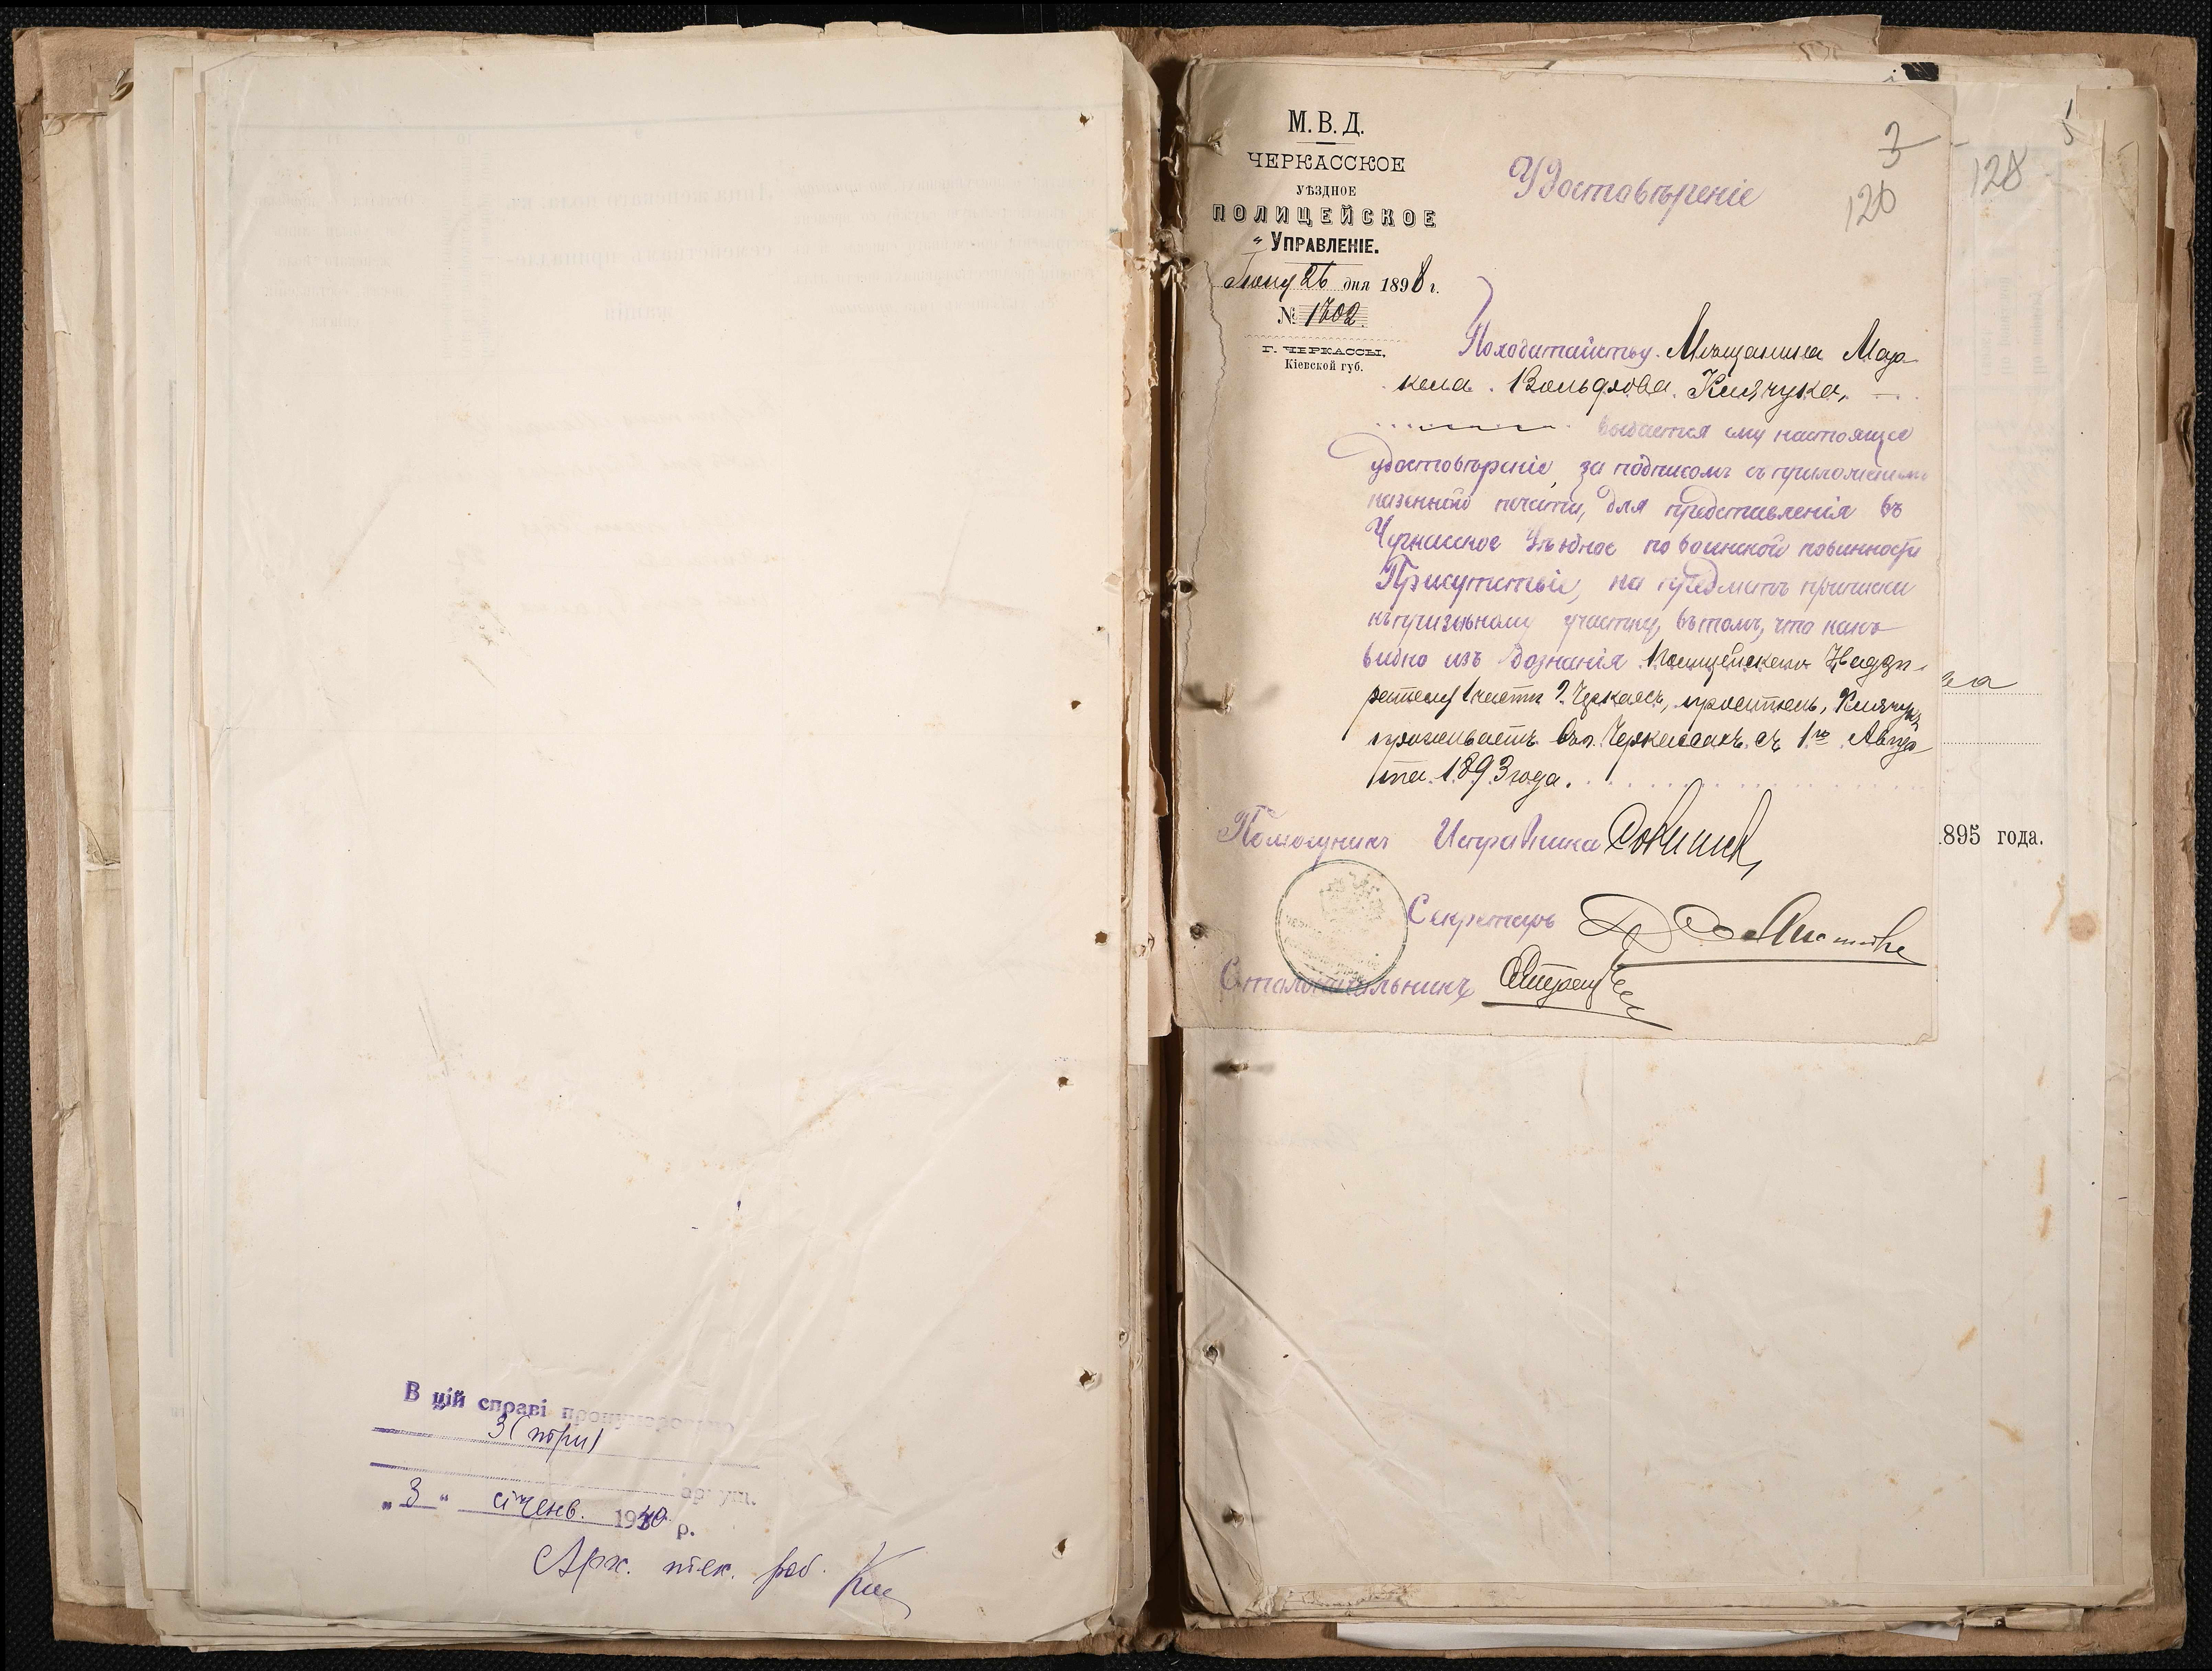 В цій справі пронумеровано
3 (три)
арк уш.
„3“ січень. 1940 р.
Арх. тех. роб.
М. В. Д.
ЧЕРКАССКОЕ
УѢЗДНОЕ
ПОЛИЦЕЙСКОЕ
УПРАВЛЕНІЕ.
26 дня 1898 г.
№ 1702.
Г. ЧЕРКАССЫ,
Кіевской губ.
Удостовѣреніе
3
120
128
5
По ходатайству Мѣщанина Мар
кела Вольфова Клячука,
выдается ему настоящее
удостовѣреніе, за подписомъ съ приложеніемъ
казенной печати, для представленія въ
Черкасское Уѣздное по воинской повинности
Присутствіе, на предметъ приписки
къ призывному участку, въ томъ, что какъ
видно изъ дознанія Полицейскаго Надзи-
рателя 1 части г. Черкассъ, проситель, Клячукъ
проживаетъ въ г. Черкассахъ съ 1го Авгу
ста 1893 года.
Помощникъ Исправника
Секретарь
Столоначальникъ
ва
895 года.